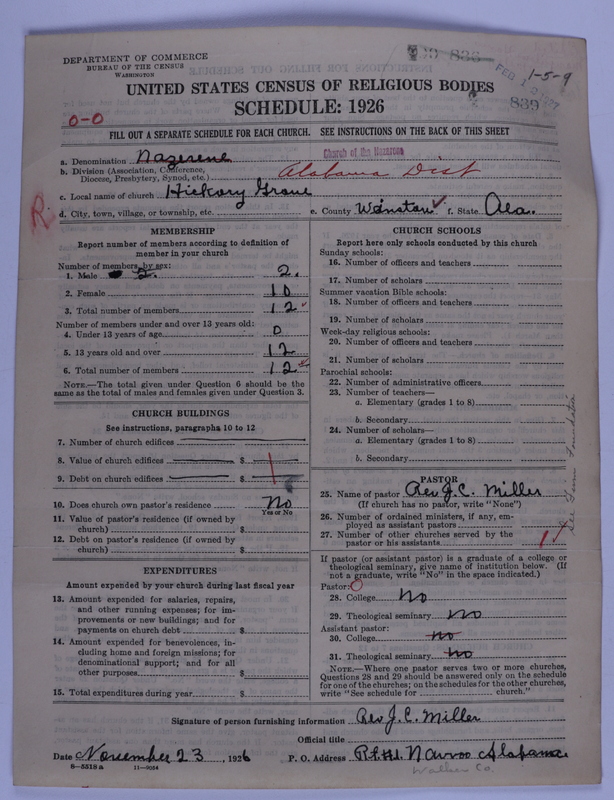 DEPARTMENT OF COMMERCE
BUREAU OF THE CENSUS
WASHINGTON
1-5-9
839
UNITED STATES CENSUS OF RELIGIOUS BODIES
SCHEDULE: 1926
0-0
FILL OUT A SEPARATE SCHEDULE FOR EACH CHURCH. SEE INSTRUCTIONS ON THE BACK OF THIS SHEET
Church of the Nazarene
a. Denomination Nazerene
b. Division (Association, Conference, Diocese, Presbytery, Synod, etc.) Alabama Dist
c. Local name of church Hickory Grove
d. City, town, village, or township, etc. e. County Winston f. State Ala.
R
MEMBERSHIP
Report number of members according to definition of member in your church
Number of members by sex:
1. Male 2. 2.
2. Female 10
3. Total number of members 12
Number of members under and over 13 years old:
4. Under 13 years of age 0
5. 13 years old and over 12
6. Total number of members 12
NOTE.—The total given under Question 6 should be the same as the total of males and females given under Question 3.
CHURCH BUILDINGS
See instructions, paragraphs 10 to 12
7. Number of church edifices
8. Value of church edifices $
9. Debt on church edifices $
10. Does church own pastor's residence No
Yes or No
11. Value of pastor's residence (if owned by church) $
12. Debt on pastor's residence (if owned by church) $
EXPENDITURES
Amount expended by your church during last fiscal year
13. Amount expended for salaries, repairs, and other running expenses; for improvements or new buildings; and for payments on church debt $
14. Amount expended for benevolences, including home and foreign missions; for denominational support; and for all other purposes $
15. Total expenditures during year $
CHURCH SCHOOLS
Report here only schools conducted by this church
Sunday schools:
16. Number of officers and teachers
17. Number of scholars
Summer vacation Bible schools:
18. Number of officers and teachers
19. Number of scholars
Week-day religious schools:
20. Number of officers and teachers
21. Number of scholars
Parochial schools:
22. Number of administrative officers
23. Number of teachers—
a. Elementary (grades 1 to 8)
b. Secondary
24. Number of scholars—
a. Elementary (grades 1 to 8)
b. Secondary
PASTOR
25. Name of pastor Rev J. C. Miller
(If church has no pastor, write "None")
26. Number of ordained ministers, if any, employed as assistant pastors
27. Number of other churches served by the pastor or his assistants 1
If pastor (or assistant pastor) is a graduate of a college or theological seminary, give name of institution below. (If not a graduate, write "No" in the space indicated.)
Pastor: O
28. College No
29. Theological seminary No
Assistant pastor:
30. College no
31. Theological seminary no
NOTE.—Where one pastor serves two or more churches, Questions 28 and 29 should be answered only on the schedule for one of the churches; on the schedules for the other churches, write "See schedule for church."
Signature of person furnishing information Rev J. C. Miller
Official title
Date November 23, 1926 P. O. Address Rt #1. Nauvoo Alabama.
8—5518 a 11—9064
Walker Co.